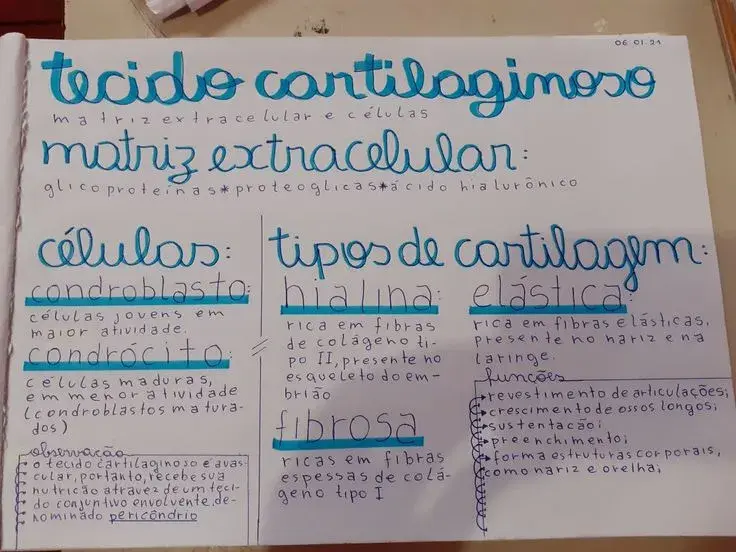 06.01.21
tecido cartilaginoso
matriz extracelular e células
matriz extracelular:
glicoproteínas*proteoglicas*ácido hialurônico
células:
condroblasto:
células jovens em
maior atividade.
condrócito:
células maduras,
em menor atividade
(condroblastos matura-
dos)
observação
o tecido cartilaginoso é avas-
cular, portanto, recebe sua
nutrição atravez de um teci-
do conjuntivo envolvente, de-
nominado pericôndrio
tipos de cartilagem:
hialina:
rica em fibras
de colágeno ti-
po II, presente no
esqueleto do em-
brião
fibrosa
ricas em fibras
espessas de colá-
geno tipo I
elástica:
rica em fibras elásticas,
presente no nariz e na
laringe.
funções
revestimento de articulações;
crescimento de ossos longos;
sustentacão;
preenchimento;
forma estruturas corporais,
como nariz e orelha;